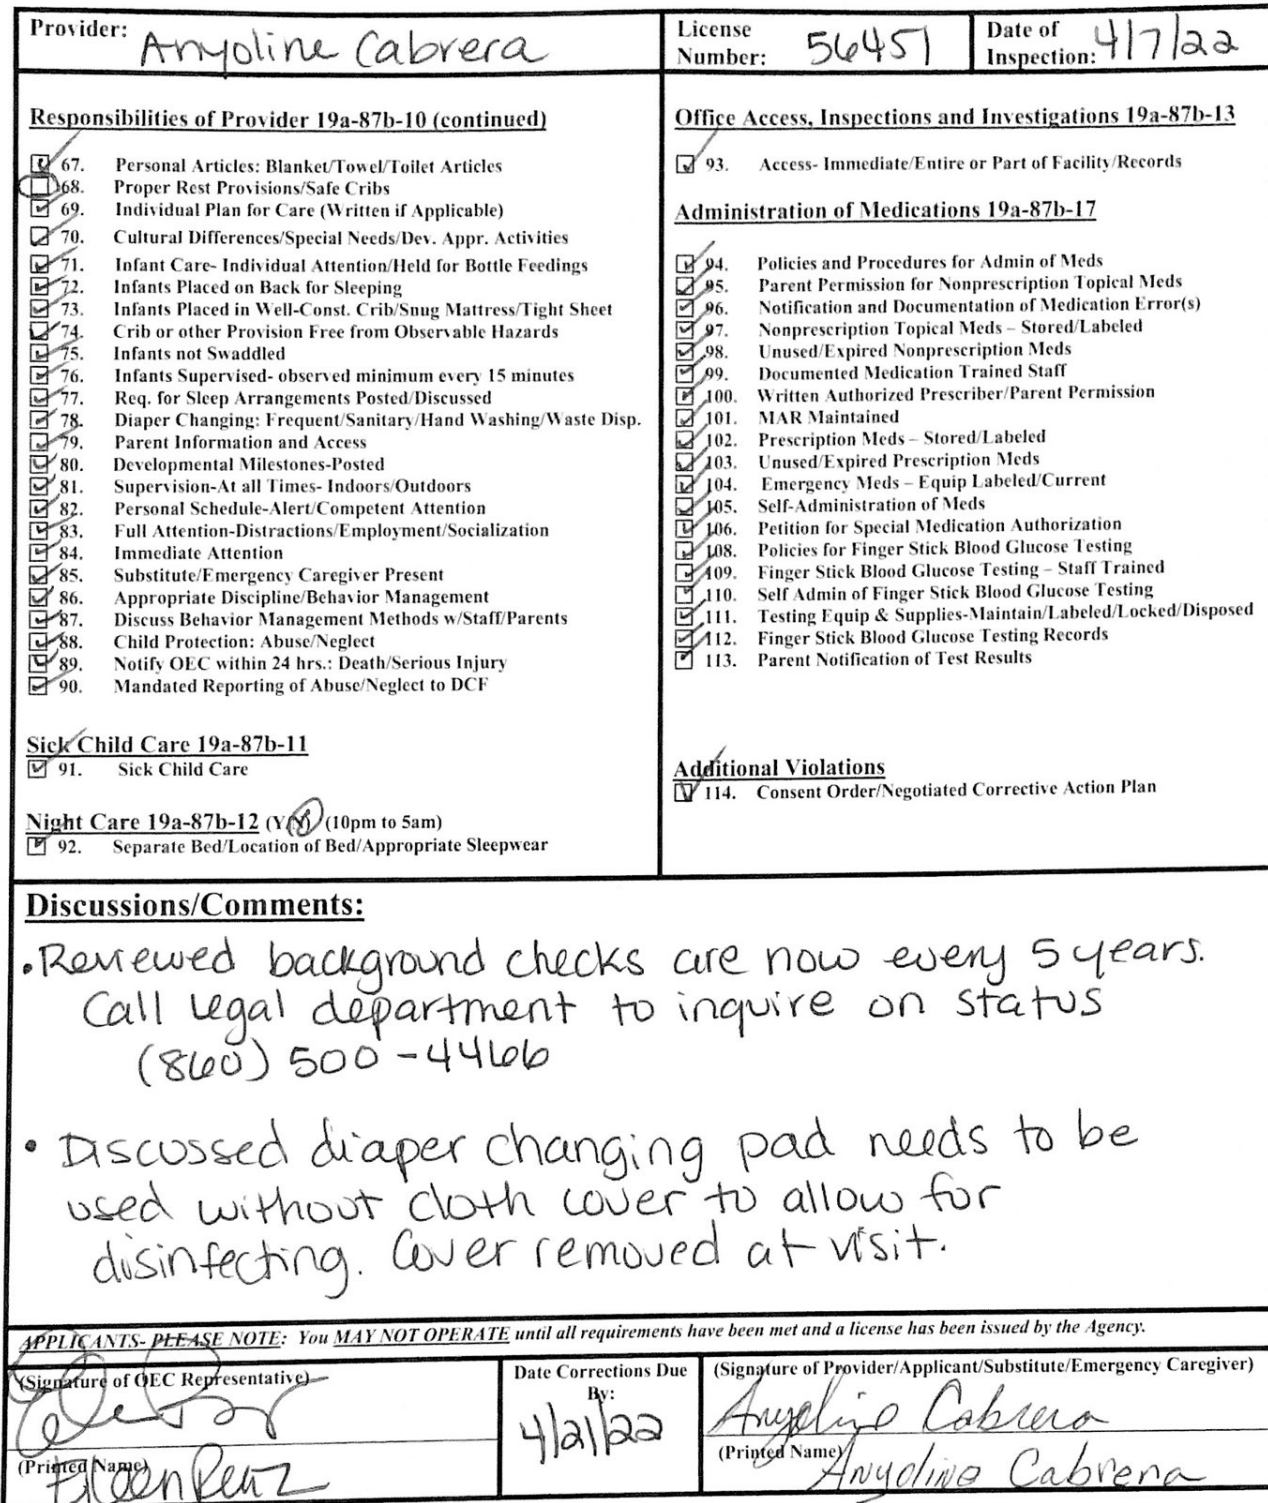 Provider: Anyoline Cabrera
License Number: 56451
Date of Inspection: 4/7/22
Responsibilities of Provider 19a-87b-10 (continued)
67. Personal Articles: Blanket/Towel/Toilet Articles
68. Proper Rest Provisions/Safe Cribs
69. Individual Plan for Care (Written if Applicable)
70. Cultural Differences/Special Needs/Dev. Appr. Activities
71. Infant Care- Individual Attention/Held for Bottle Feedings
72. Infants Placed on Back for Sleeping
73. Infants Placed in Well-Const. Crib/Snug Mattress/Tight Sheet
74. Crib or other Provision Free from Observable Hazards
75. Infants not Swaddled
76. Infants Supervised- observed minimum every 15 minutes
77. Req. for Sleep Arrangements Posted/Discussed
78. Diaper Changing: Frequent/Sanitary/Hand Washing/Waste Disp.
79. Parent Information and Access
80. Developmental Milestones-Posted
81. Supervision-At all Times- Indoors/Outdoors
82. Personal Schedule-Alert/Competent Attention
83. Full Attention-Distractions/Employment/Socialization
84. Immediate Attention
85. Substitute/Emergency Caregiver Present
86. Appropriate Discipline/Behavior Management
87. Discuss Behavior Management Methods w/Staff/Parents
88. Child Protection: Abuse/Neglect
89. Notify OEC within 24 hrs.: Death/Serious Injury
90. Mandated Reporting of Abuse/Neglect to DCF
Sick Child Care 19a-87b-11
91. Sick Child Care
Night Care 19a-87b-12 (Y/N) (10pm to 5am)
92. Separate Bed/Location of Bed/Appropriate Sleepwear
Office Access, Inspections and Investigations 19a-87b-13
93. Access- Immediate/Entire or Part of Facility/Records
Administration of Medications 19a-87b-17
94. Policies and Procedures for Admin of Meds
95. Parent Permission for Nonprescription Topical Meds
96. Notification and Documentation of Medication Error(s)
97. Nonprescription Topical Meds – Stored/Labeled
98. Unused/Expired Nonprescription Meds
99. Documented Medication Trained Staff
100. Written Authorized Prescriber/Parent Permission
101. MAR Maintained
102. Prescription Meds – Stored/Labeled
103. Unused/Expired Prescription Meds
104. Emergency Meds – Equip Labeled/Current
105. Self-Administration of Meds
106. Petition for Special Medication Authorization
108. Policies for Finger Stick Blood Glucose Testing
109. Finger Stick Blood Glucose Testing – Staff Trained
110. Self Admin of Finger Stick Blood Glucose Testing
111. Testing Equip & Supplies-Maintain/Labeled/Locked/Disposed
112. Finger Stick Blood Glucose Testing Records
113. Parent Notification of Test Results
Additional Violations
114. Consent Order/Negotiated Corrective Action Plan
Discussions/Comments:
• Reviewed background checks are now every 5 years.
Call legal department to inquire on status
(860) 500-4466
• Discussed diaper changing pad needs to be
used without cloth cover to allow for
disinfecting. Cover removed at visit.
APPLICANTS- PLEASE NOTE: You MAY NOT OPERATE until all requirements have been met and a license has been issued by the Agency.
(Signature of OEC Representative)
(Printed Name)
Date Corrections Due
By:
4/21/22
(Signature of Provider/Applicant/Substitute/Emergency Caregiver)
Anyoline Cabrera
(Printed Name)
Anyoline Cabrera